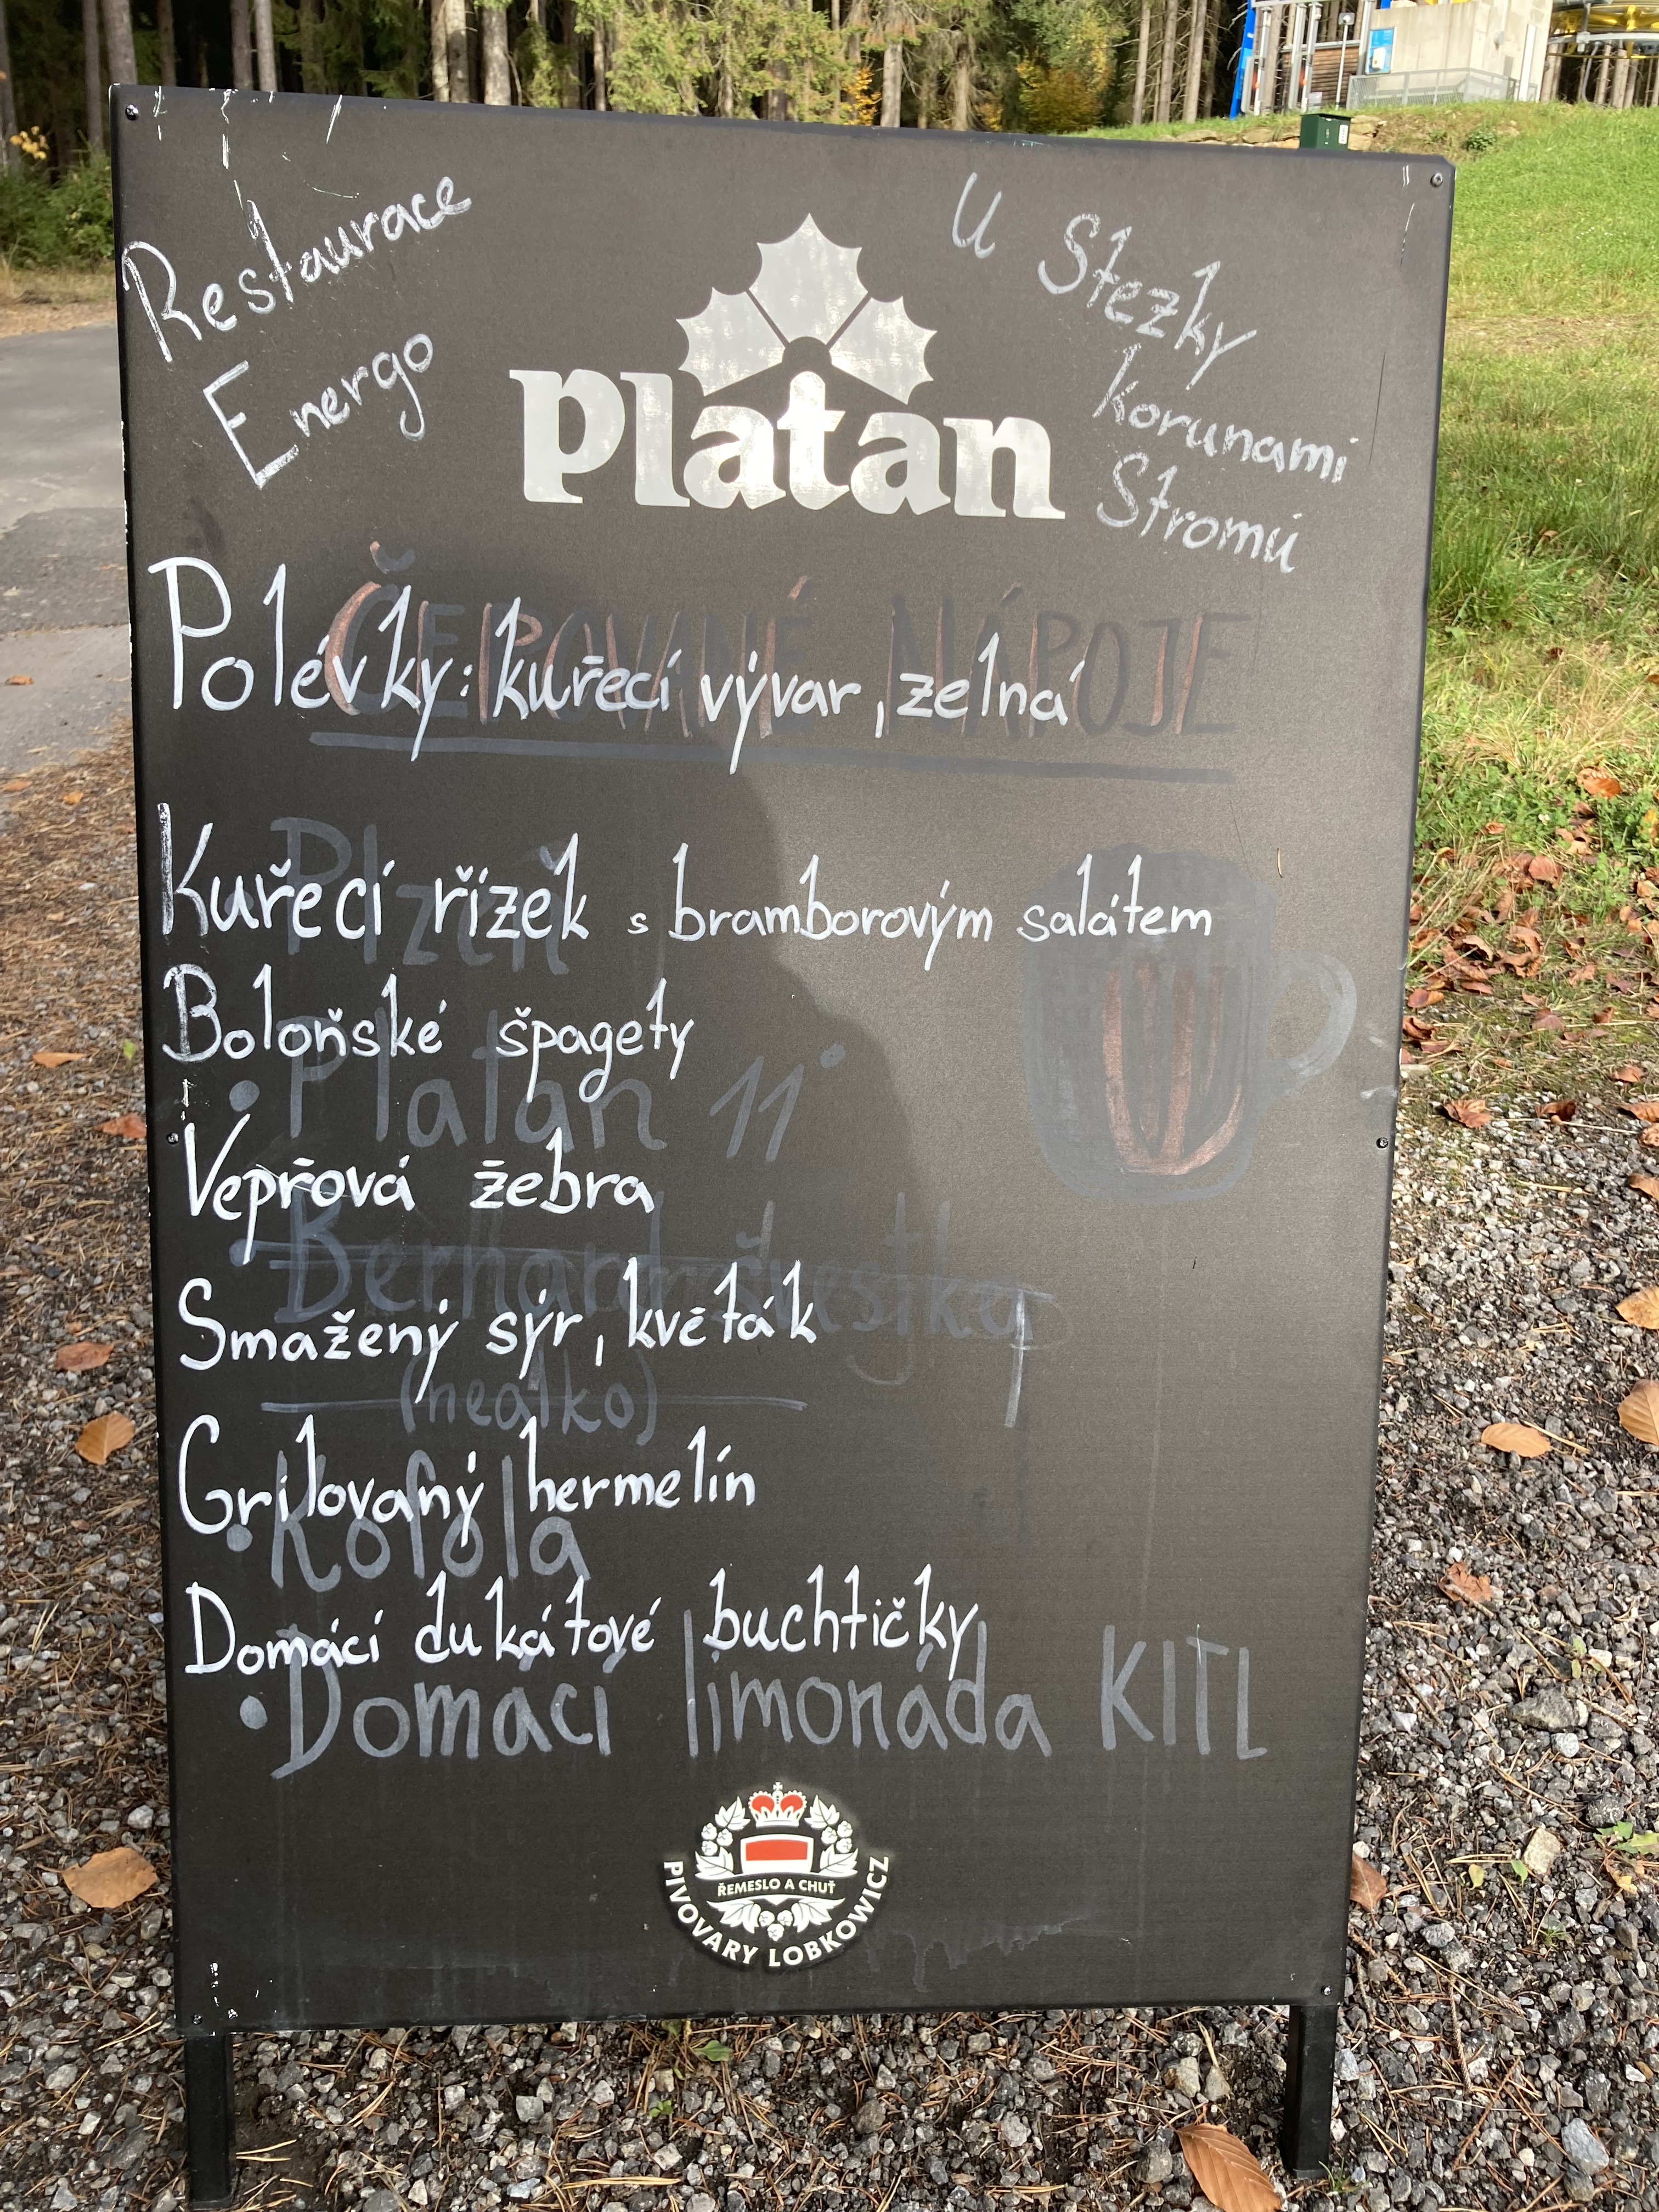 Restaurace
Energo
Platan
U Stezky
korunami
Stromů
ČEPOVANÉ NÁPOJE
Polévky: kuřecí vývar, zelná
Plzeň
Kuřecí řízek s bramborovým salátem
Boloňské špagety
• Platan 11°
Vepřová žebra
• Bernard švestka
Smažený sýr, květák
(nealko)
Grilovaný hermelín
• Kofola
Domácí dukátové buchtičky
• Domácí limonáda KITL
ŘEMESLO A CHUŤ
PIVOVARY LOBKOWICZ